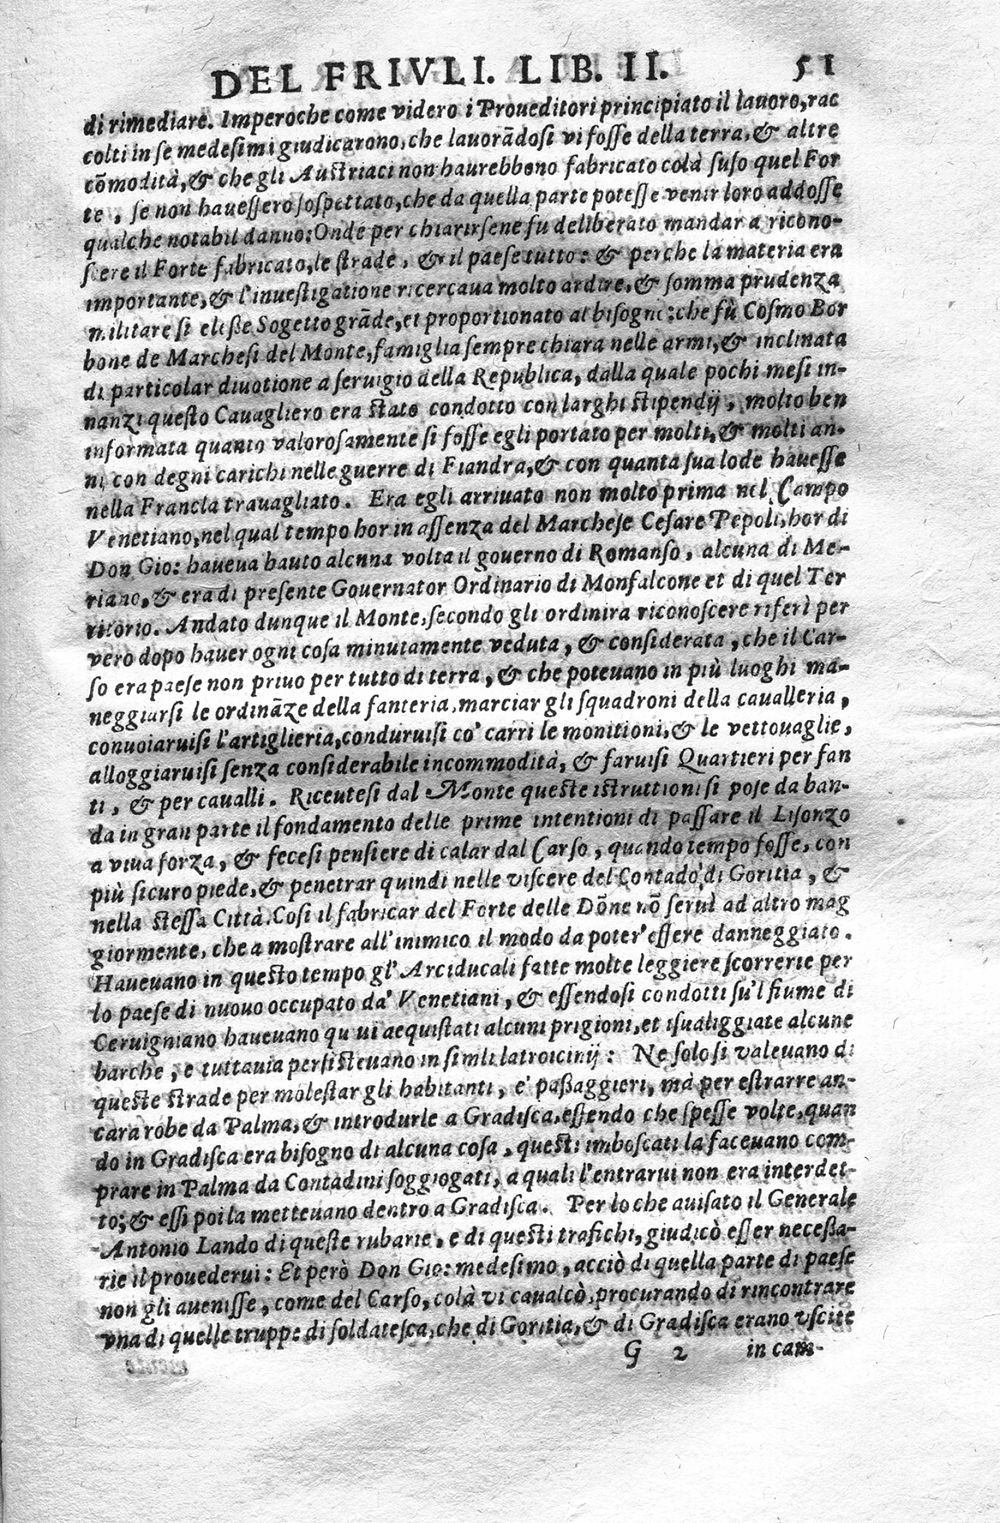 DEL FRIVLI. LIB. II. 51
di rimediare. Imperoche come videro i Proueditori principiato il lauoro, rac
colti in se medesimi giudicarono, che lauorādosi vi fosse della terra, & altre
cōmodità, & che gli Austriaci non haurebbono fabricato colà suso quel For
te, se non hauessero sospettato, che da quella parte potesse venir loro addosse
qualche notabil danno: Onde per chiarirsene fu deliberato mandar a ricono-
scere il Forte fabricato, le strade, & il paese tutto: & perche la materia era
importante, & l'inuestigatione ricercaua molto ardire, & somma prudenza
militare si elesse Sogetto grāde, et proportionato al bisogno: che fù Cosmo Bor
bone de Marchesi del Monte, famiglia sempre chiara nelle armi, & inclinata
di particolar diuotione a seruigio della Republica, dalla quale pochi mesi in-
nanzi questo Cauagliero era stato condotto con larghi stipendij, molto ben
informata quanto valorosamente si fosse egli portato per molti, & molti an-
ni con degni carichi nelle guerre di Fiandra, & con quanta sua lode hauesse
nella Francia trauagliato. Era egli arriuato non molto prima nel Campo
Venetiano, nel qual tempo hor in assenza del Marchese Cesare Pepoli, hor di
Don Gio: haueua hauto alcuna volta il gouerno di Romanso, alcuna di Me-
riano, & era di presente Gouernator Ordinario di Monfalcone et di quel Ter
ritorio. Andato dunque il Monte, secondo gli ordini ra riconoscere riferì per
vero dopo hauer ogni cosa minutamente veduta, & considerata, che il Car-
so era paese non priuo per tutto di terra, & che poteuano in più luoghi ma-
neggiarsi le ordināze della fanteria, marciar gli squadroni della caualleria,
conuoiaruisi l'artiglieria, conduruisi co' carri le monitioni, & le vettouaglie,
alloggiaruisi senza considerabile incommodità, & faruisi Quartieri per fan
ti, & per caualli. Riceutesi dal Monte queste istruttioni si pose da ban-
da in gran parte il fondamento delle prime intentioni di passare il Lisonzo
a viua forza, & fecesi pensiere di calar dal Carso, quando tempo fosse, con
più sicuro piede, & penetrar quindi nelle viscere del Contado di Goritia, &
nella stessa Città. Cosi il fabricar del Forte delle Dōne nō seruì ad altro mag
giormente, che a mostrare all'inimico il modo da poter' essere danneggiato.
Haueuano in questo tempo gl' Arciducali fatte molte leggiere scorrerie per
lo paese di nuouo occupato da' Venetiani, & essendosi condotti su'l fiume di
Ceruignano haueuano qu ui aequistati alcuni prigioni, et isualiggiate alcune
barche, e tuttauia persisteuano in simili latroicinij: Ne solo si valeuano di
queste strade per molestar gli habitanti, e' passaggieri, ma per estrarre an-
cara robe da Palma, & introdurle a Gradisca, essendo che spesse volte, quan
do in Gradisca era bisogno di alcuna cosa, questi imboscati la faceuano com-
prare in Palma da Contadini soggiogati, a quali l'entrarui non era interdet-
to; & essi poi la metteuano dentro a Gradisca. Per lo che auisato il Generale
Antonio Lando di queste rubarie, e di questi trafichi, giudicò esser necessa-
rie il prouederui: Et però Don Gio: medesimo, acciò di quella parte di paese
non gli auenisse, come del Carso, colà vi caualcò, procurando di rincontrare
vna di quelle truppe di soldatesca, che di Goritia, & di Gradisca erano vscite
G 2 in cam-